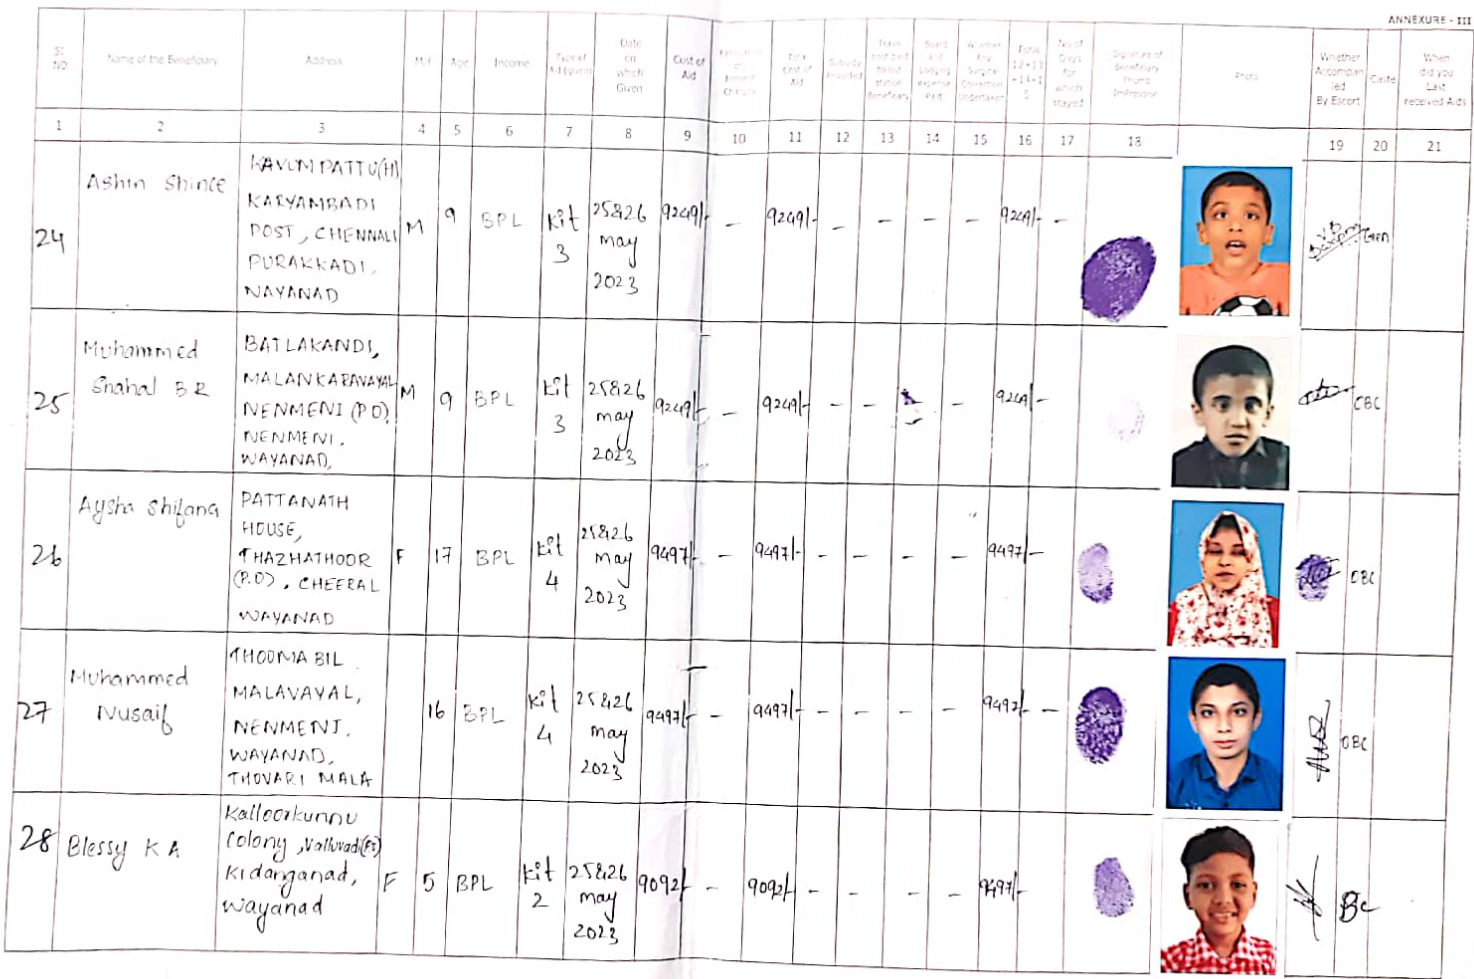 ANNEXURE - III
Sl. NO Name of the Beneficiary Address M/F Age Income Type of Aid (given) Date on which Given Cost of Aid Total Cost of Aid Subsidy Provided Travel cost paid to out station Beneficiary Board and Lodging expense Paid Whether Any Surgical Correction Undertaken Total 12+13+14+15 No of Days for which stayed Signature of Beneficiary Thumb Impression Photo Whether Accompanied By Escort Caste When did you Last received Aids
1 2 3 4 5 6 7 8 9 10 11 12 13 14 15 16 17 18 19 20 21
24 Ashin Shince KAVUMPATTU(H) KARYAMBADI POST, CHENNALI PURAKKADI, WAYANAD M 9 BPL Kit 3 25&26 May 2023 9249/- - 9249/- - - - - 9249/- - Gen
25 Muhammed Shahal B R BATLAKANDI, MALANKARAVAYAL NENMENI (PO), NENMENI, WAYANAD, M 9 BPL Kit 3 25&26 may 2023 9249/- - 9249/- - - - 9249/- OBC
26 Aysha Shifana PATTANATH HOUSE, THAZHATHOOR (P.O), CHEERAL WAYANAD F 17 BPL Kit 4 25&26 May 2023 9497/- - 9497/- - - - - 9497/- OBC
27 Muhammed Nusaif THOOMABIL MALAVAYAL, NENMENI, WAYANAD, THOVARI MALA 16 BPL Kit 4 25&26 may 2023 9497/- - 9497/- - - - - 9497/- - OBC
28 Blessy K A Kalloorkunnu Colony, Valluvadi(Po) Kidanganad, Wayanad F 5 BPL Kit 2 25&26 may 2023 9092/- - 9092/- - - - - 9497/-